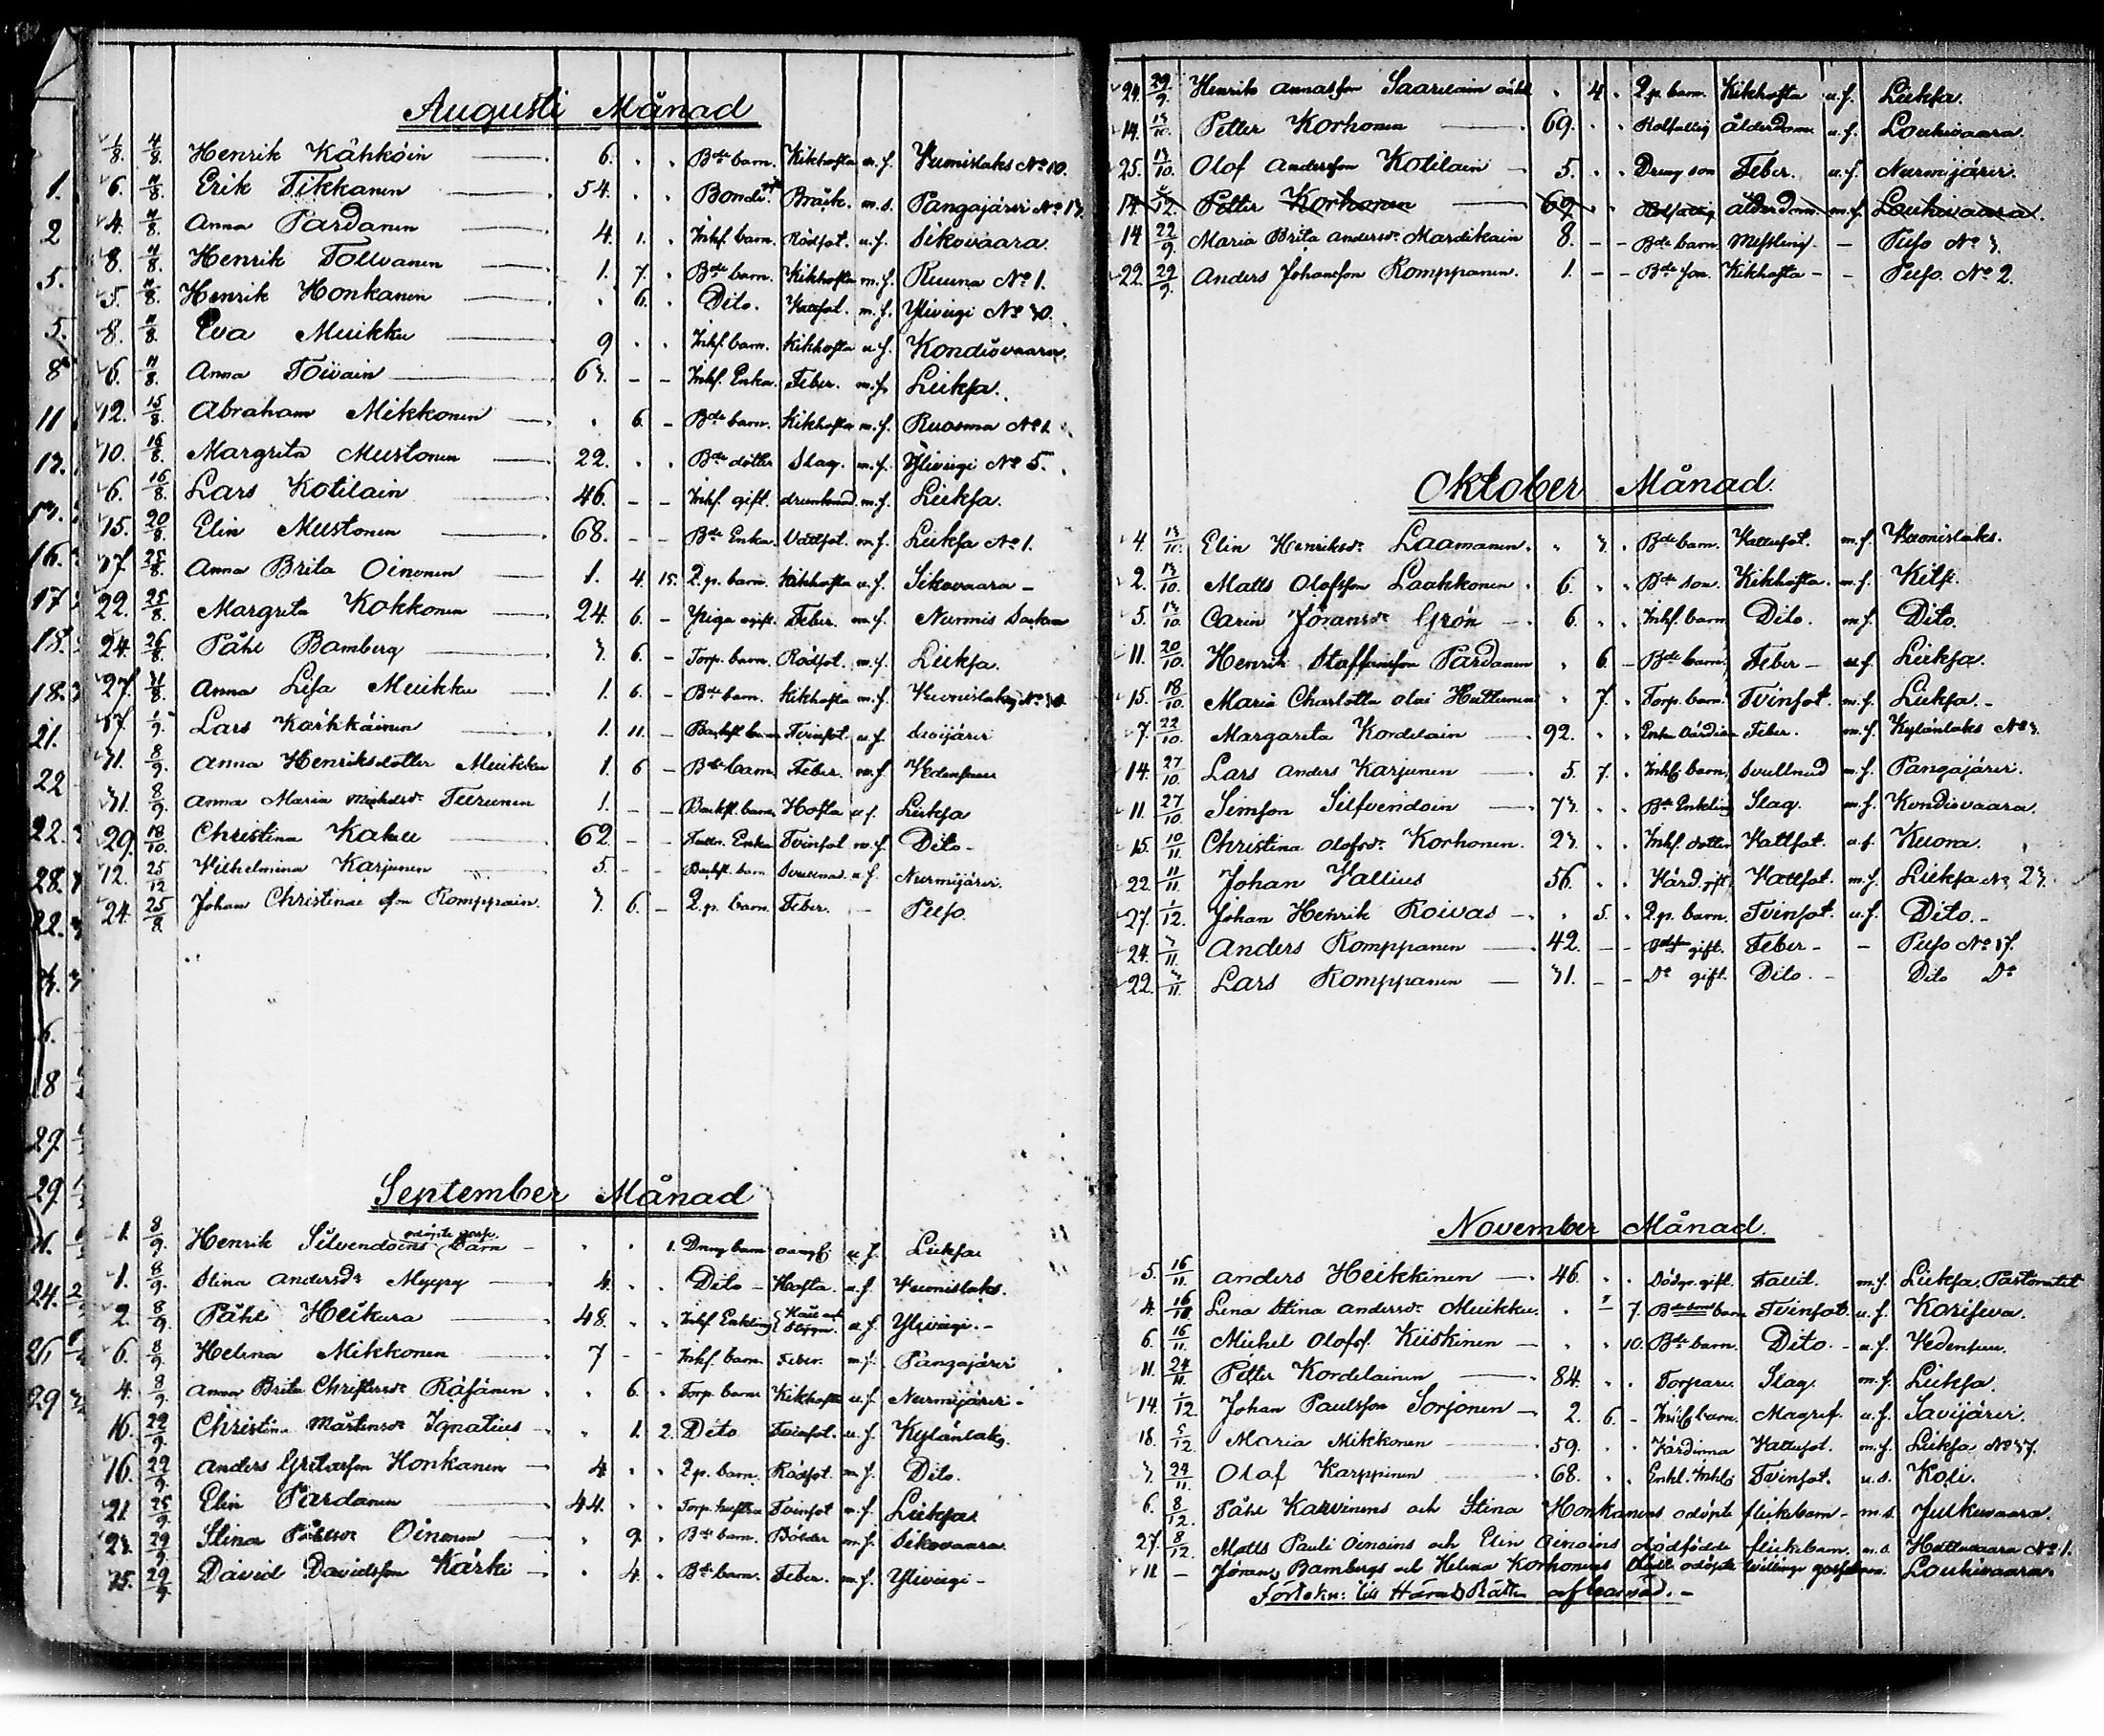 Augusti Månad
1/8. 4/8. Henrik Kähköin 6. Bde barn. Kikhosta m.f. Wuonislaks No 10.
6. 11/8. Erik Tikkanen 54. Bonde Bråck. m.s. Pangajärvi No 13.
4. 11/8. Anna Pardanen 4. 1. Inhs. barn. Rödsot. u.f. Sikovaara.
8. 11/8. Henrik Tollvanen 1. 7. Bde barn. Kikhosta m.f. Ruuna No 1.
5. 11/8. Henrik Honkanen 6. Dito. Wattsot. m.f. Ylivirgi No 30.
8. 11/8. Eva Muikku 9 Inhs. barn. Kikhosta u.f. Kondisvaara.
6. 11/8. Anna Toivain 63. Inhs. Enka. Feber. m.f. Lieksa.
12. 15/8. Abraham Mikkonen 6. Bde barn. Kikhosta m.f. Ruosma No 1.
10. 16/8. Margreta Mustonen 22. Bde dotter Slag. m.f. Ylivirgi No 5.
6. 16/8. Lars Kotilain 46. Inhs. gift. drunknad m.f. Lieksa.
15. 20/8. Elin Mustonen 68. Bde Enka. Vattsot. m.f. Lieksa No 1.
17. 25/8. Anna Brita Oinonen 1. 4. 15. 2. p. barn. Kikhosta u.f. Sikovaara
22. 25/8. Margreta Kokkonen 24. 6. Piga ogift. Feber. m.f. Nurmis Socken
24. 26/8. Påhl Bamberg 3. 6. Torp. barn. Rödsot. m.f. Lieksa.
27. 31/8. Anna Lisa Muikku 1. 6. Bde barn. Kikhosta m.f. Wuonislaks No 30
17. 1/9. Lars Karhkäinen 1. 11. Tvinsot u.f. Savijärvi
31. 8/9. Anna Henriksdotter Muikku 1. 6 Bde barn Feber. m.f. Wedensuu
31. 8/9. Anna Maria Michelsdr Teerunen 1. Backst. barn Hosta u.f. Lieksa
29. 18/10. Christina Kakuu 62 Enka Tvinsot m.f. Dito
12. 25/12 Wilhelmina Karjunen 5. Backst. barn u.f. Nurmijärvi.
24. 25/8. Johan Christinae son Romppain. 3. 6. 2. p. barn. Feber. Puso.
September Månad
1. 8/9. Henrik Silvendoins odöpte goss Barn 1. Dreng barn u.f. Lieksa
1. 8/9. Stina Andersdr Myyry 4. Dito Hosta u.f. Wuonislaks.
2. 8/9. Påhl Heikura 48. Inhs Enkling u.f. Ylivirgi.
6. 8/9. Helena Mikkonen 7 Inhs. barn Feber. m.f. Pangajärvi
4. 8/9. Anna Brita Christersdr Räsänen 6. Torp. barn Kikhosta u.f. Nurmijärvi
16. 22/9. Christina Mårtensdr Ignatius 1. 2. Dito Tvinsot. u.f. Kylänlaks.
16. 22/9. Anders Gretasson Honkanen 4 2 p. barn. Rödsot m.f. Dito.
21. 25/9. Elin Pardanen 44. Torp. hustru Tvinsot m.f. Lieksa
23. 29/9. Stina Påhlsdr Oinonen 9. Bde barn. Bölder m.f. Sikovaara.
25. 29/9. David Davidsson Kärki 4. Bde barn. Feber. m.f. Ylivirgi
24. 29/9. Henrik Annasson Saarelain 4. 2. p. barn. Kikhosta u.f. Lieksa.
14. 13/10. Petter Korhonen 69. Rotfattig Ålderdom u.f. Louhivaara.
25. 13/10. Olof Andersson Kotilain 5. Dreng son Feber. u.f. Nurmijärvi.
14. 12. Petter Korhonen 69 Rotfattig ålderdom m.f. Louhivaara.
14 22/9. Maria Brita Andersdr Mardikain 8. Bde barn Messling Puso No 3.
22. 29/9. Anders Johansson Romppanen. 1. Bde son. Kikhosta Puso. No 2.
Oktober Månad.
4. 13/10. Elin Henriksdr Laamanen. 3. Bde barn. Wattusot. m.f. Wuonislaks.
2. 13/10. Matts Olofsson Laakkonen 6. Bde son. Kikhosta. m.f. Kitsi.
5. 13/10. Carin Jöransdr Grön 6. Inhs. barn Dito. m.f. Dito.
11. 20/10. Henrik Staffansson Pardanen 6. Bde barn. Feber u.f. Lieksa.
15. 18/10. Maria Charlotta Olai Huttunen 7. Torp. barn. Tvinsot. m.f. Lieksa.
7. 22/10. Margareta Kordelain 92. Enka Feber. m.f. Kylänlaks No 3.
14. 27/10. Lars Anders Karjunen 5. 7. Inhs barn. Svullnad m.f. Pangajärvi.
11. 27/10. Simson Silfvendoin 73. Bde Enkling Slag. m.f. Kondisvaara.
15. 10/11. Christina Olofsdr Korhonen. 23. Inhs. dotter Wattsot. u.f. Kuora.
22. 11/11. Johan Wallius 56. Wärd. gift Wattsot. m.f. Lieksa No 23.
27. 1/12. Johan Henrik Roivas 5. 2. p. barn. Tvinsot. u.f. Dito.
24. 3/11. Anders Romppanen 42. gift. Feber Puso No 17.
22. 3/11. Lars Romppanen 31. Do gift. Dito. Dito Do
November Månad.
5. 16/11. Anders Heikkinen 46. gift. m.f. Lieksa,
4. 16/11. Lena Stina Andersdr Muikku. 7. barn Tvinsot. u.f. Koriseva.
6. 16/11. Michel Olofs. Kiiskinen 10. Bde barn. Dito. u.f. Wedensuu.
11. 24/11. Petter Kordelainen 84. Torpare. Slag. m.f. Lieksa.
14. 1/12 Johan Paulsson Sorjonen 2. 6. Inhs barn. Magref. u.f. Savijärvi.
18. 5/12. Maria Mikkonen 59. Wärdinna Wattusot. m.f. Lieksa No 37.
3. 24/11. Olof Karppinen 68. Enkl. Inhs Tvinsot. u.s. Koli.
6. 8/12. Påhl Karvinens och Stina Honkanens odöpte flickebarn m.s. Julkuvaara.
27. 8/12. Matts Pauli Oinoins och Elin Oinoins dödfödde flickebarn. m.s. Hattuvaara No 1.
11 Jörans Bambergs och Helena Korhonens odöpte tvillinge gossebarn. Louhivaara.
Förtekn: till Härads Rätten aflämnad.